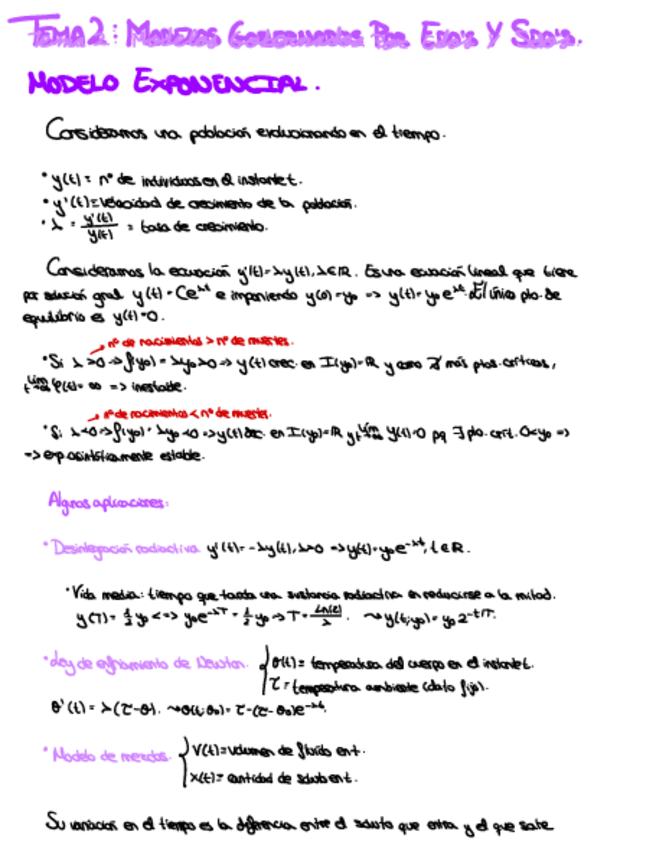 TEMA 2: MODELOS GOBERNADOS POR EDO's Y SDO's.
MODELO EXPONENCIAL.
Consideramos una población evolucionando en el tiempo.
• y(t) = nº de individuos en el instante t.
• y'(t) = velocidad de crecimiento de la población.
• λ = y'(t)/y(t) = tasa de crecimiento.
Consideramos la ecuación y'(t) = λy(t), λ∈ℝ. Es una ecuación lineal que tiene
por solución gral y(t) = Ce^{λt} e imponiendo y(0) = y₀ => y(t) = y₀e^{λt}. El único pto. de
equilibrio es y(t) = 0.
nº de nacimientos > nº de muertes.
• Si λ>0 → f(y₀) = λy₀>0 → y(t) crec. en I(y₀)=ℝ y como ∄ más ptos. críticos,
lím φ(t) = ∞ => inestable.
nº de nacimientos < nº de muertes.
• Si λ<0 → f(y₀) = λy₀<0 → y(t) dec. en I(y₀)=ℝ y lím y(t)=0 pq ∃ pto. crít. 0<y₀ =>
=> exp. asintóticamente estable.
Algunas aplicaciones:
• Desintegración radiactiva y'(t) = -λy(t), λ>0 → y(t) = y₀e^{-λt}, t∈ℝ.
• Vida media: tiempo que tarda una sustancia radiactiva en reducirse a la mitad.
y(T) = ½ y₀ <=> y₀e^{-λT} = ½ y₀ → T = ln(2)/λ. ⇝ y(t;y₀) = y₀ 2^{-t/T}.
• Ley de enfriamiento de Newton. { θ(t) = temperatura del cuerpo en el instante t.
τ = temperatura ambiente (dato fijo).
θ'(t) = λ(τ-θ). ⇝ θ(t;θ₀) = τ-(τ-θ₀)e^{-λt}.
• Modelo de mezclas. { V(t) = volumen de fluido en t.
x(t) = cantidad de soluto en t.
Su variación en el tiempo es la diferencia entre el soluto que entra y el que sale